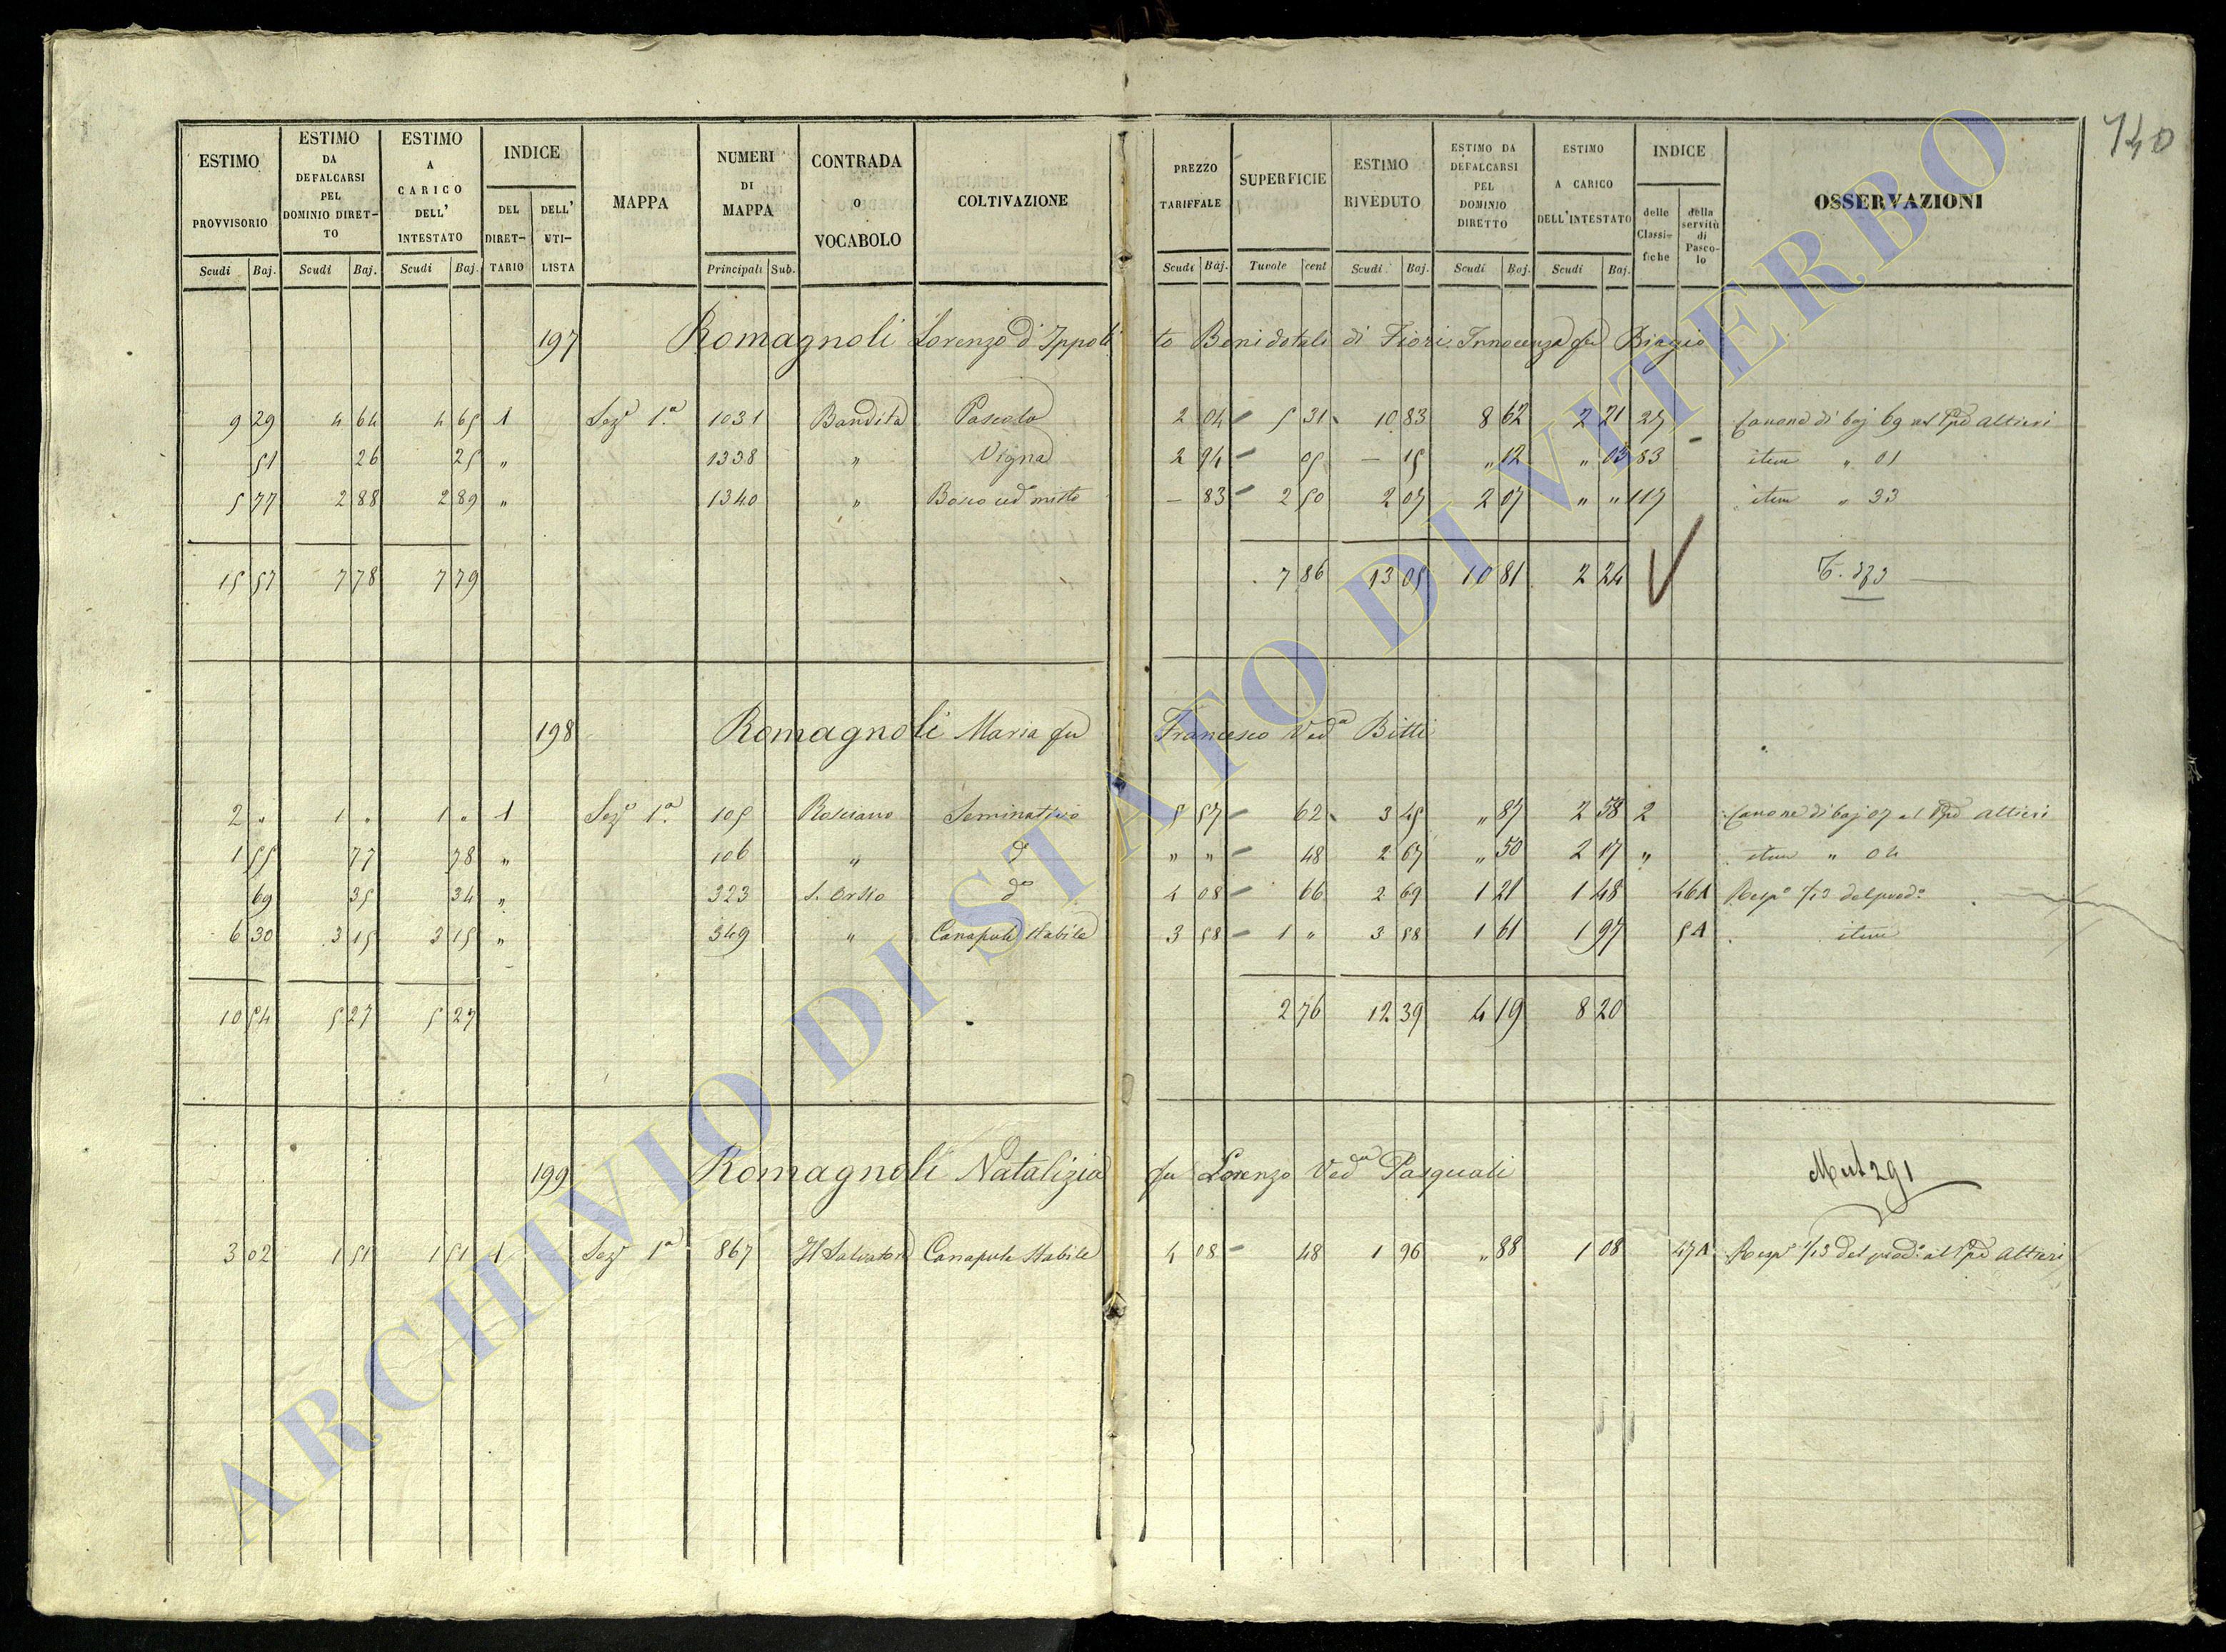 140
ESTIMO PROVVISORIO Scudi Baj.
ESTIMO DA DEFALCARSI PEL DOMINIO DIRETTO Scudi Baj.
ESTIMO A CARICO DELL' INTESTATO Scudi Baj.
INDICE DEL DIRETTARIO DELL' UTILISTA
MAPPA
NUMERI DI MAPPA Principali Sub.
CONTRADA O VOCABOLO
COLTIVAZIONE
PREZZO TARIFFALE Scudi Baj.
SUPERFICIE Tavole cent
ESTIMO RIVEDUTO Scudi Baj.
ESTIMO DA DEFALCARSI PEL DOMINIO DIRETTO Scudi Baj.
ESTIMO A CARICO DELL'INTESTATO Scudi Baj.
INDICE delle Classifiche della servitù di Pascolo
OSSERVAZIONI
197 Romagnoli Lorenzo d'Ippolito Beni dotali di Fiori Innocenza fu Biagio
9 29 4 64 4 65 1 Sezе 1.a 1031 Bandita Pascolo 2 04 5 31 10 83 8 62 2 21 27 Canone di baj 69 al Ppe Altieri
51 26 25 " 1338 " Vigna 2 94 05 – 15 " 12 " 03 83 item " 01
5 77 2 88 2 89 " 1340 " Bosco ced. misto – 83 2 50 2 07 2 07 " " 117 item " 33
15 57 7 78 7 79 7 86 13 05 10 81 2 24
198 Romagnoli Maria fu Francesco Ved.a Bitti
2 " 1 " 1 " 1 Seze 1.a 105 Rosciano Seminativo 5 57 62 3 45 " 87 2 58 2 Canone di baj 07 al Ppe Altieri
1 55 77 78 " 106 " d.o " " 48 2 67 " 50 2 17 " item " 04
69 35 34 " 323 S. Orsio d.o 4 08 66 2 69 1 21 1 48 46A Resp.e 1/13 del prod.o
6 30 3 15 3 15 " 349 " Canapule stabile 3 58 1 " 3 58 1 61 1 97 5A item
10 54 5 27 5 27 2 76 12 39 4 19 8 20
199 Romagnoli Natalizia fu Lorenzo Ved.a Pasquali
Mut 291
3 02 1 51 1 51 1 Seze 1.a 867 Il Salvatore Canapule Stabile 4 08 48 1 96 " 88 1 08 47A Resp.e 1/13 del prod.o al Ppe Altieri
ARCHIVIO DI STATO DI VITERBO